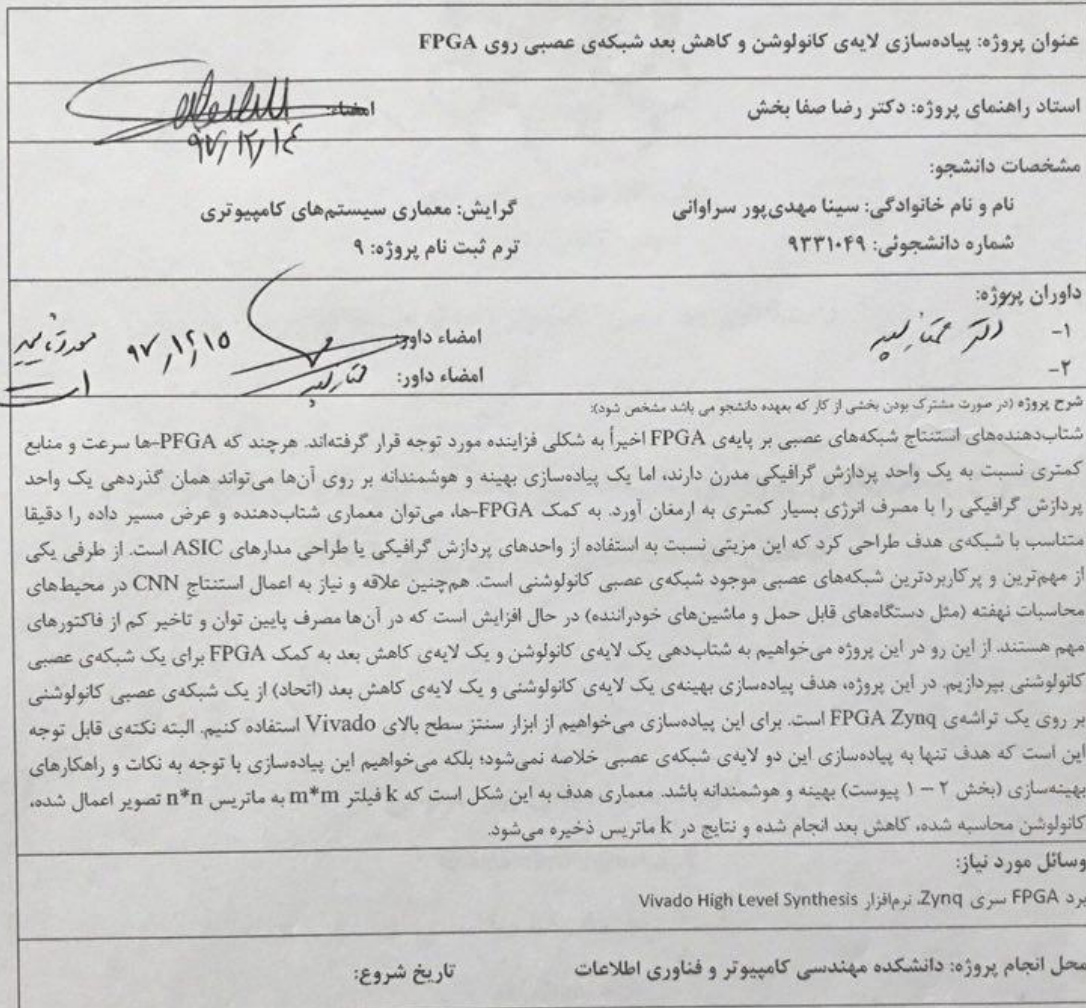 عنوان پروژه: پیاده‌سازی لایه‌ی کانولوشن و کاهش بعد شبکه‌ی عصبی روی FPGA
استاد راهنمای پروژه: دکتر رضا صفا بخش امضاء:
۹۷/۱۲/۱۴
مشخصات دانشجو:
نام و نام خانوادگی: سینا مهدی‌پور سراوانی گرایش: معماری سیستم‌های کامپیوتری
شماره دانشجوئی: ۹۳۳۱۰۴۹ ترم ثبت نام پروژه: ۹
داوران پروژه:
۱- دکتر امضاء داور: ۹۷/۱۲/۱۵
۲- امضاء داور:
شرح پروژه (در صورت مشترک بودن بخشی از کار که بعهده دانشجو می باشد مشخص شود):
شتاب‌دهنده‌های استنتاج شبکه‌های عصبی بر پایه‌ی FPGA اخیراً به شکلی فزاینده مورد توجه قرار گرفته‌اند. هرچند که PFGA-ها سرعت و منابع
کمتری نسبت به یک واحد پردازش گرافیکی مدرن دارند، اما یک پیاده‌سازی بهینه و هوشمندانه بر روی آن‌ها می‌تواند همان گذردهی یک واحد
پردازش گرافیکی را با مصرف انرژی بسیار کمتری به ارمغان آورد. به کمک FPGA-ها، می‌توان معماری شتاب‌دهنده و عرض مسیر داده را دقیقا
متناسب با شبکه‌ی هدف طراحی کرد که این مزیتی نسبت به استفاده از واحدهای پردازش گرافیکی یا طراحی مدارهای ASIC است. از طرفی یکی
از مهم‌ترین و پرکاربردترین شبکه‌های عصبی موجود شبکه‌ی عصبی کانولوشنی است. هم‌چنین علاقه و نیاز به اعمال استنتاج CNN در محیط‌های
محاسبات نهفته (مثل دستگاه‌های قابل حمل و ماشین‌های خودراننده) در حال افزایش است که در آن‌ها مصرف پایین توان و تاخیر کم از فاکتورهای
مهم هستند. از این رو در این پروژه می‌خواهیم به شتاب‌دهی یک لایه‌ی کانولوشن و یک لایه‌ی کاهش بعد به کمک FPGA برای یک شبکه‌ی عصبی
کانولوشنی بپردازیم. در این پروژه، هدف پیاده‌سازی بهینه‌ی یک لایه‌ی کانولوشنی و یک لایه‌ی کاهش بعد (اتحاد) از یک شبکه‌ی عصبی کانولوشنی
بر روی یک تراشه‌ی FPGA Zynq است. برای این پیاده‌سازی می‌خواهیم از ابزار سنتز سطح بالای Vivado استفاده کنیم. البته نکته‌ی قابل توجه
این است که هدف تنها به پیاده‌سازی این دو لایه‌ی شبکه‌ی عصبی خلاصه نمی‌شود؛ بلکه می‌خواهیم این پیاده‌سازی با توجه به نکات و راهکارهای
بهینه‌سازی (بخش ۲ – ۱ پیوست) بهینه و هوشمندانه باشد. معماری هدف به این شکل است که k فیلتر m*m به ماتریس n*n تصویر اعمال شده،
کانولوشن محاسبه شده، کاهش بعد انجام شده و نتایج در k ماتریس ذخیره می‌شود.
وسائل مورد نیاز:
برد FPGA سری Zynq، نرم‌افزار Vivado High Level Synthesis
محل انجام پروژه: دانشکده مهندسی کامپیوتر و فناوری اطلاعات تاریخ شروع: